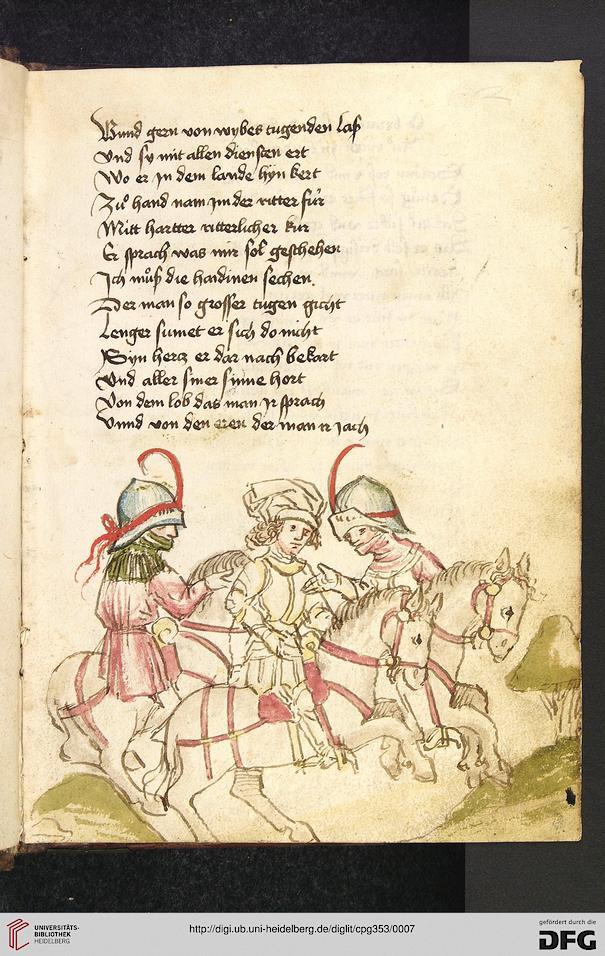 Vnnd gern von wybes tugenden laß
Vnd sy mit allen diensten ert
Wo er jn dem lande hyn kert
Zuͦ hand nam jm der ritter für
Mitt hartter ritterlicher kür
Er sprach was mir sol geschehen
Ich muͦß die haidinen sechen
Der man so grosser tugen gicht
Lenger sumet er sich do nicht
Syn hercz er dar nach bekart
Vnd aller siner sinne hort
Von dem lob das man jr sprach
Vnnd von den eren der man ir jach
UNIVERSITÄTS-
BIBLIOTHEK
HEIDELBERG
http://digi.ub.uni-heidelberg.de/diglit/cpg353/0007
gefördert durch die
DFG